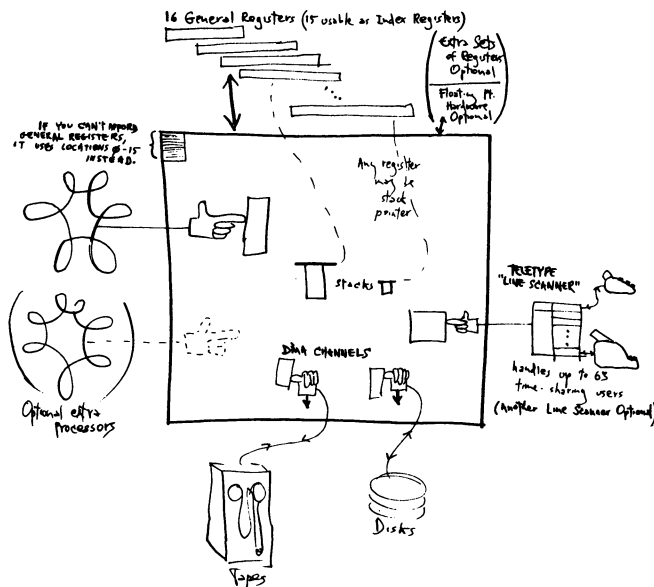 16 General Registers (15 usable as Index Registers)
(Extra Sets
of Registers
Optional
Floating Pt.
Hardware
Optional)
IF YOU CAN'T AFFORD
GENERAL REGISTERS,
IT USES LOCATIONS 0-15
INSTEAD.
Any register
may be
stack
pointer
stacks
TELETYPE
"LINE SCANNER"
handles up to 63
time-sharing users
(Another Line Scanner Optional)
DMA CHANNELS
Optional extra
processors
Tapes
Disks